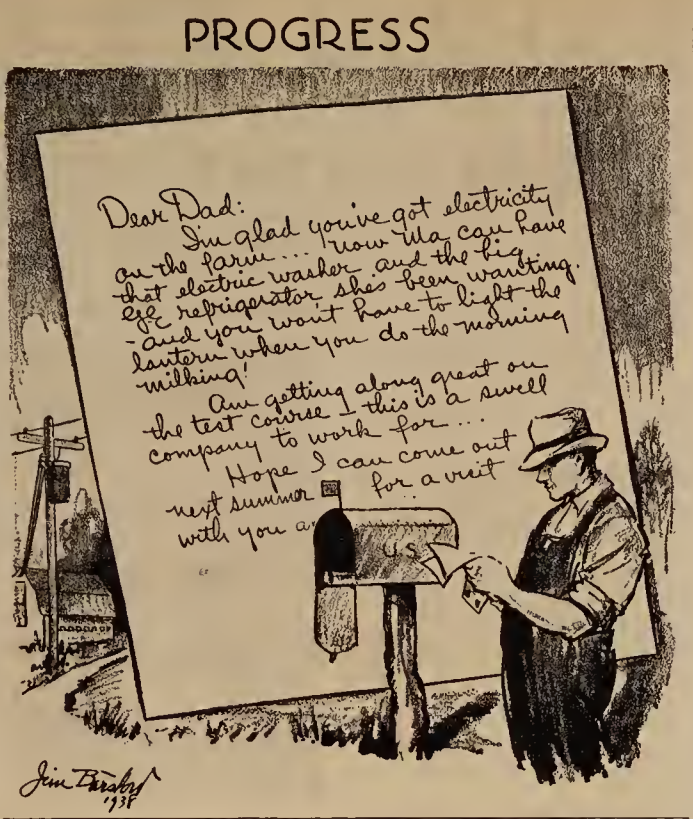 PROGRESS
Dear Dad:
I'm glad you've got electricity
on the farm... now Ma can have
that electric washer and the big
GE refrigerator she's been wanting.
- and you won't have to light the
lantern when you do the morning
milking!
Am getting along great on
the test course - this is a swell
company to work for...
Hope I can come out
next summer for a visit
with you a
U.S.
Jim
1938